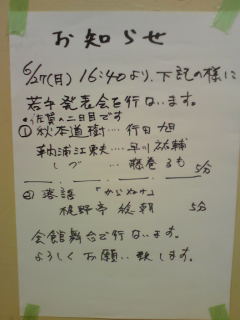 お知らせ
6/27(月) 16:40より、下記の様に
若手発表会を行ないます。
• 佐賀の二日目です
① 秋本道樹‥‥行田 旭
鞆浦江東夫‥早川 祐輔
しづ ‥ 藤巻 るも 5分
② 落語 「からぬけ」
梶野亭 総朝 5分
会館舞台で行ないます。
よろしくお願い致します。